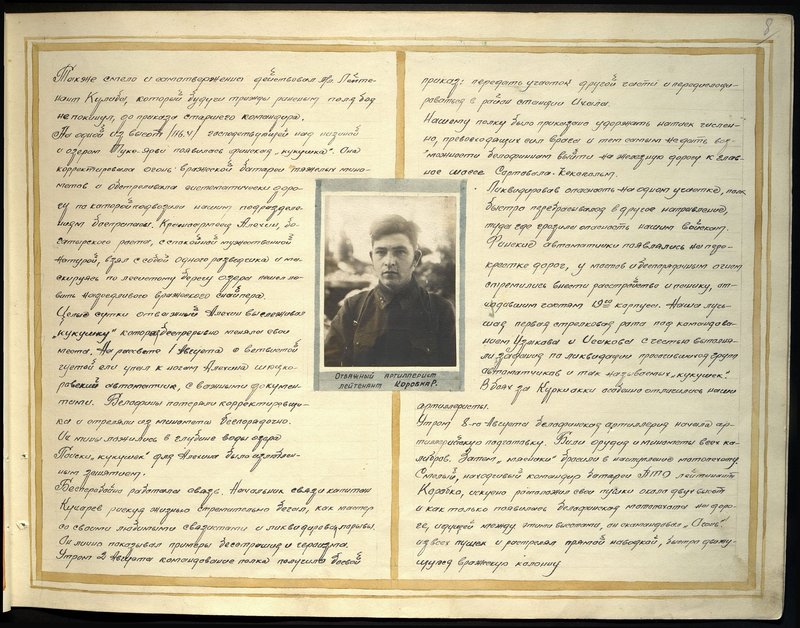 8
Также смело и самоотверженно действовал мл. Лейте-
нант Кулиба, который будучи трижды раненым поля боя
не покинул, до приказа старшего командира.
На одной из высот /116.4/ господствующей над низиной
и озером Туко-Ярви появилась финская „кукушка". Она
корректировала огонь вражеской батареи тяжелых мино-
метов и обстреливала систематически доро-
гу по которой подвозили нашим подразделе-
ниям боеприпасы. Красноармеец Алехин, бо-
гатырского роста, с спокойной мужественной
натурой, взял с собой одного разведчика и ма-
скируясь по лесистому берегу озера пошел ло-
вить надоедливого вражеского снайпера.
Целые сутки отважный Алехин выслеживал
„кукушку" которая беспрерывно меняла свои
места. На рассвете 1 Августа с ветвистой
густой ели упал к ногам Алехина шюцко-
ровский автоматчик, с важными докумен-
тами. Белофины потеряли корректировщи-
ка и стреляли из миномета беспорядочно.
Их мины ложились в глубине воды озера
Поиски „кукушек" для Алехина было излюблен-
ным занятием.
Бесперебойно работала связь. Начальник связи капитан
Кухарев рискуя жизнью стремительно бегал, как мастер
со своими любимыми связистами и ликвидировал порывы.
Он лично показывал примеры бесстрашия и героизма.
Утром 2 Августа командование полка получило боевой
приказ: передать участок другой части и передислоци-
роваться в район станции Ихала.
Нашему полку было приказано удержать натиск числен-
но, превосходящих сил врага и тем самым не дать воз-
можности белофиннам выйти на железную дорогу к глав-
ное шоссе Сортовала-Кексгольм.
Ликвидировав опасность на одном участке, полк
быстро перебрасывался в другое направление,
туда где грозила опасность нашим войскам.
Финские автоматчики появлялись на пере-
крестке дорог, у мостов и беспорядочным огнем
стремились внести расстройство и панику, от-
ходившим частям 19го корпуса. Наша луч-
шая первая стрелковая рота под командова-
нием Ушакова и Осокова с честью выполня-
ли задания по ликвидации просочившихся групп
автоматчиков и так называемых „кукушек".
В боях за Куркиакки особенно отличились наши
артиллеристы.
Утром 8-го Августа белофинская артиллерия начала ар-
тиллерийскую подготовку. Били орудия и минометы всех ка-
либров. Затем бросили в наступление мотопехоту.
Смелый, находчивый командир батареи ПТО лейтенант
Коробко, искусно расположил свои пушки около двух высот
и как только появилась белофинская мотопехота на доро-
ге, идущей между этими высотами, он скомандовал „Огонь"
из всех пушек и расстрелял прямой наводкой, быстро движу-
щуюся вражескую колонну
Отважный артиллерист
лейтенант Коробка Р.